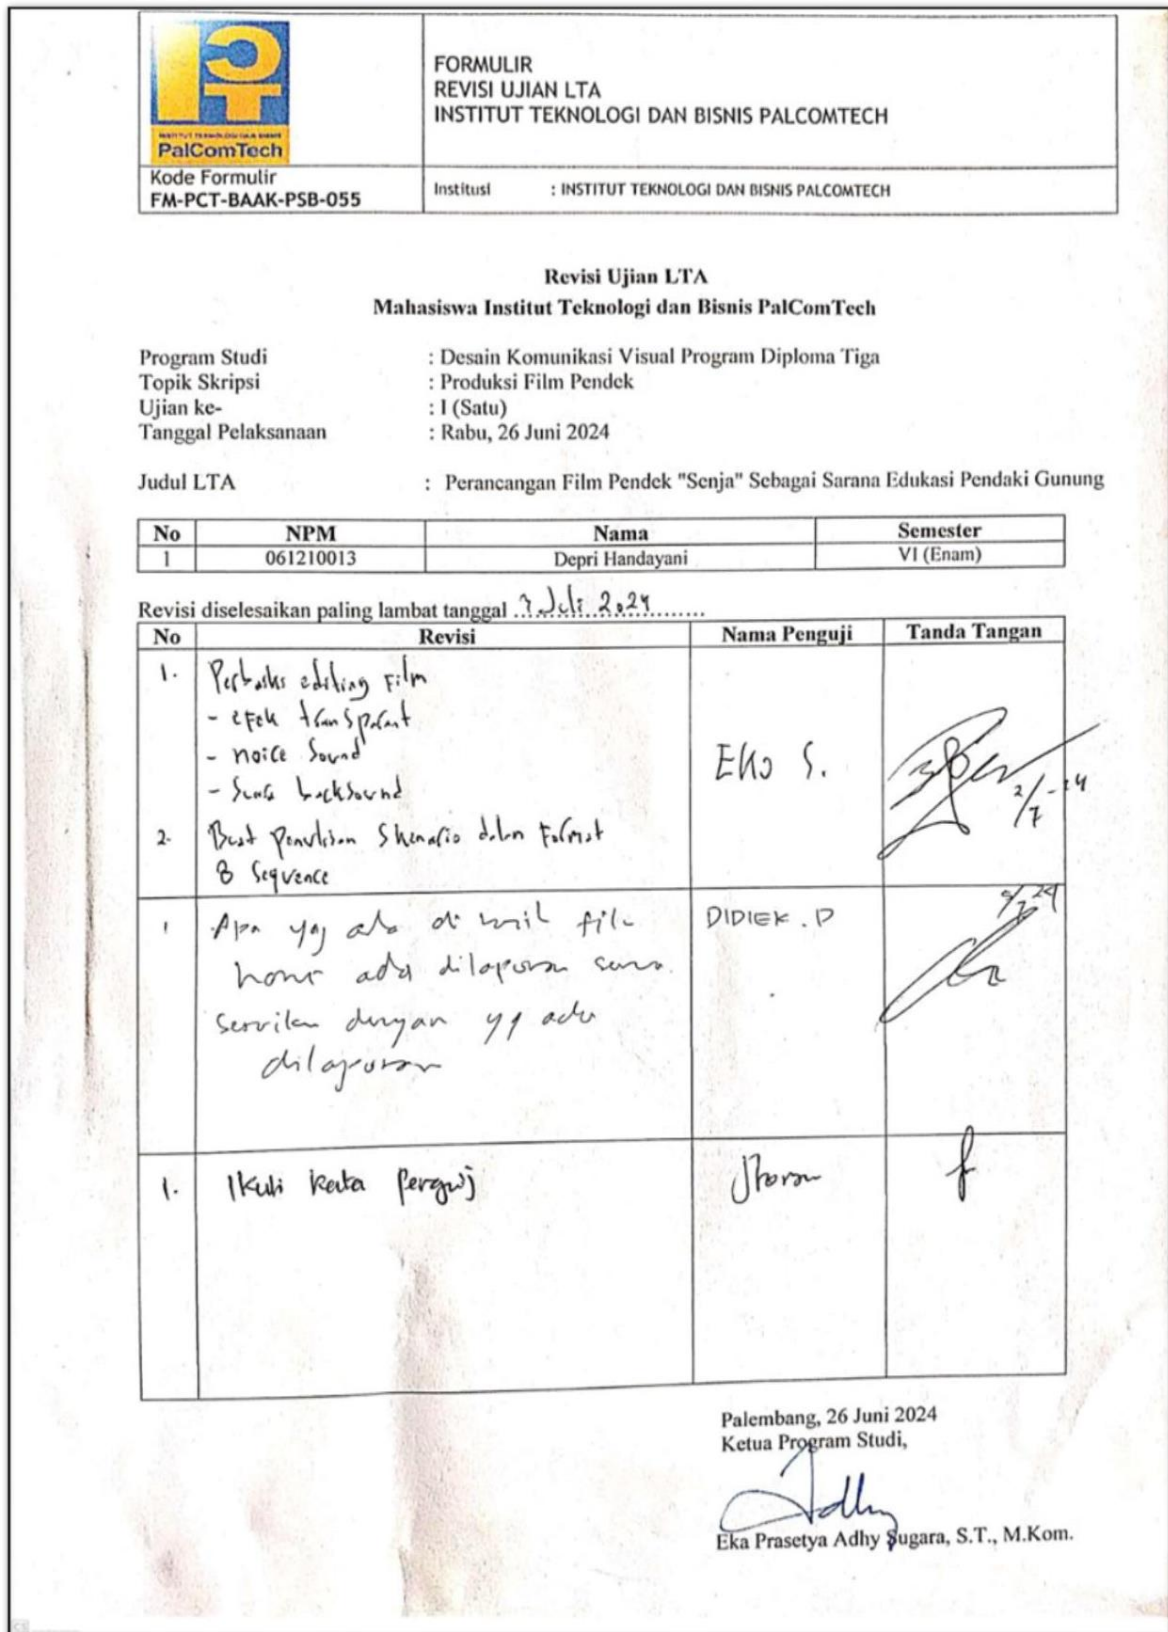 INSTITUT TEKNOLOGI DAN BISNIS
PalComTech
FORMULIR
REVISI UJIAN LTA
INSTITUT TEKNOLOGI DAN BISNIS PALCOMTECH
Kode Formulir
FM-PCT-BAAK-PSB-055
Institusi : INSTITUT TEKNOLOGI DAN BISNIS PALCOMTECH
Revisi Ujian LTA
Mahasiswa Institut Teknologi dan Bisnis PalComTech
Program Studi : Desain Komunikasi Visual Program Diploma Tiga
Topik Skripsi : Produksi Film Pendek
Ujian ke- : I (Satu)
Tanggal Pelaksanaan : Rabu, 26 Juni 2024
Judul LTA : Perancangan Film Pendek "Senja" Sebagai Sarana Edukasi Pendaki Gunung
No NPM Nama Semester
1 061210013 Depri Handayani VI (Enam)
Revisi diselesaikan paling lambat tanggal Juli 2024
No Revisi Nama Penguji Tanda Tangan
1. editing Film
- efek transparant
- noice Sound
- backsound
Eko S.
2/7-24
2. Buat penulisan Skenario dalam Format
8 Sequence
1 Apa yg ada di
ada dilaporan
dengan yg ada
dilaporan
DIDIEK. P
1. Ikuti kata Penguji
Palembang, 26 Juni 2024
Ketua Program Studi,
Eka Prasetya Adhy Sugara, S.T., M.Kom.
CS